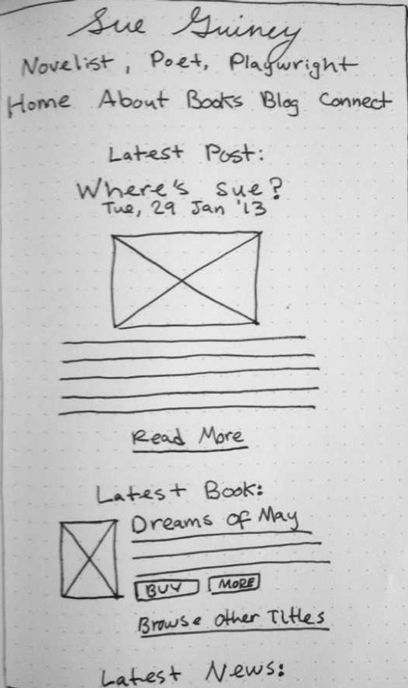 Sue Guiney
Novelist, Poet, Playwright
Home About Books Blog Connect
Latest Post:
Where's Sue?
Tue, 29 Jan '13
Read More
Latest Book:
Dreams of May
BUY MORE
Browse other Titles
Latest News: